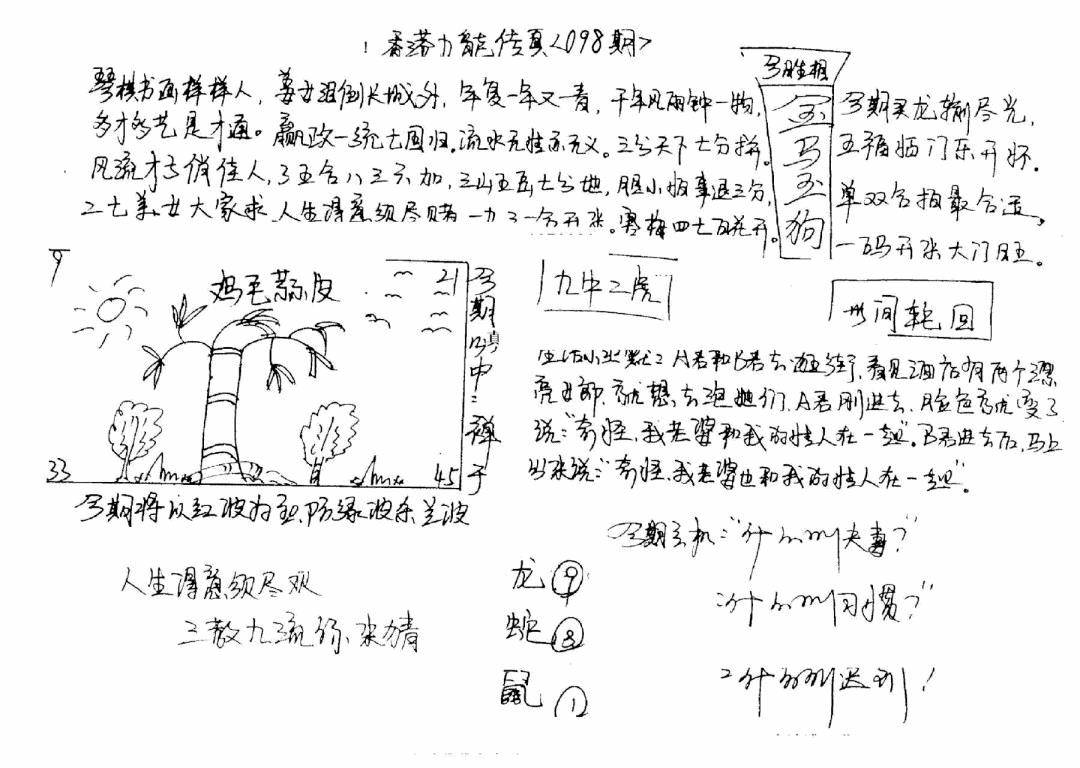 香港力能传真<098期>
琴棋书画样样人, 姜女泪倒长城外, 年复一年又一春, 千年风雨钟一物,
多才多艺是才通。嬴政一统七国归。流水无性亦无义。三分天下七分拼。
风流才子俏佳人, 了五合八三六加, 三山五岳七分地, 胆小怕事退三分,
二七美女大家求, 人生得意须尽赌 一力三一合开张。寒梅四七百花开。
今期买龙输尽光,
五福临门乐开怀.
单双合拍最合适,
一码开张大门旺。
今生相
金
马
玉
狗
9
21
33
45
鸡毛蒜皮
今期
中:
禅
于
九中二虎
世间轮回
A君和B君去逛街, 看见酒店有两个漂
亮女郎, 就想去泡她们, A君刚进去, 脸色就变了
说:"奇怪, 我老婆和我的情人在一起"。B君进去后, 马上
出来说:"奇怪, 我老婆也和我的情人在一起"。
今期将以红波为主, 防绿波杀兰波
人生得意须尽欢
三教九流
龙 ⑨
蛇 ⑧
鼠 ①
今期玄机:"什么叫夫妻?"
:什么叫习惯?"
:什么叫迟到!